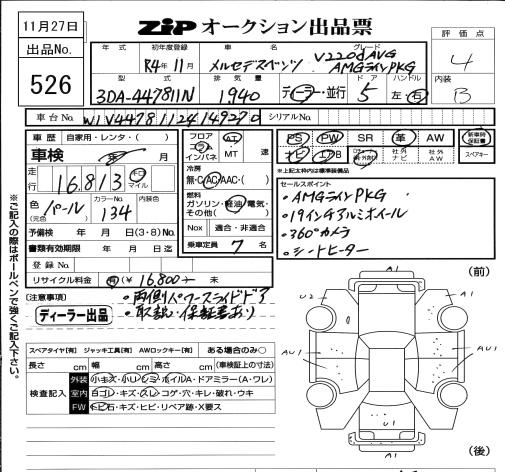 11月27日
ZIP オークション出品票
出品No.
526
年式 初年度登録 車名 グレード 評価点
R4年11月 メルセデスベンツ V220d AVG
AMGラインPKG
4
型式 排気量 ドア ハンドル 内装
3DA-447811N 1,940 ディーラー・並行 5 左・右 B
車台No. W1V44781124149270 シリアルNo.
車歴 自家用・レンタ・( )
車検 年 月
走行 16,813 キロ マイル
色(元色) パール カラーNo. 134 内装色
予備検 年 月 日(3・8)No.
書類有効期限 年 月 日迄
登録No.
リサイクル料金 有(¥16,800 未
フロア コラム インパネ AT MT 速
冷房 無・C・AC・AAC・( )
燃料 ガソリン・軽油・電気・その他( )
Nox 適合・非適合
乗車定員 7 名
PS PW SR 革 AW 新車時保証書
ナビ エアB 社外ナビ 社外AW スペアキー
※上記太枠内は標準装備品
セールスポイント
・AMGラインPKG
・19インチアルミホイール
・360°カメラ
・シートヒーター
(注意事項)
・両側パワースライドドア
・取説・保証書あり
ディーラー出品
※ご記入の際はボールペンで強くご記入下さい。
スペアタイヤ[有] ジャッキ工具[有] AWロックキー[有] ある場合のみ○
長さ cm 幅 cm 高さ cm (車検証上の寸法)
検査記入
外装 小キズ・小ヘコ・シミ・ホイルA・ドアミラー(A・ワレ)
室内 白ゴレ・キズ・スレ・コゲ・穴・キレ・破れ・ウキ
FW トビ石・キズ・ヒビ・リペア跡・X要ス
(前)
A1
U2
A1
AU1
AU1
U1
A1
(後)